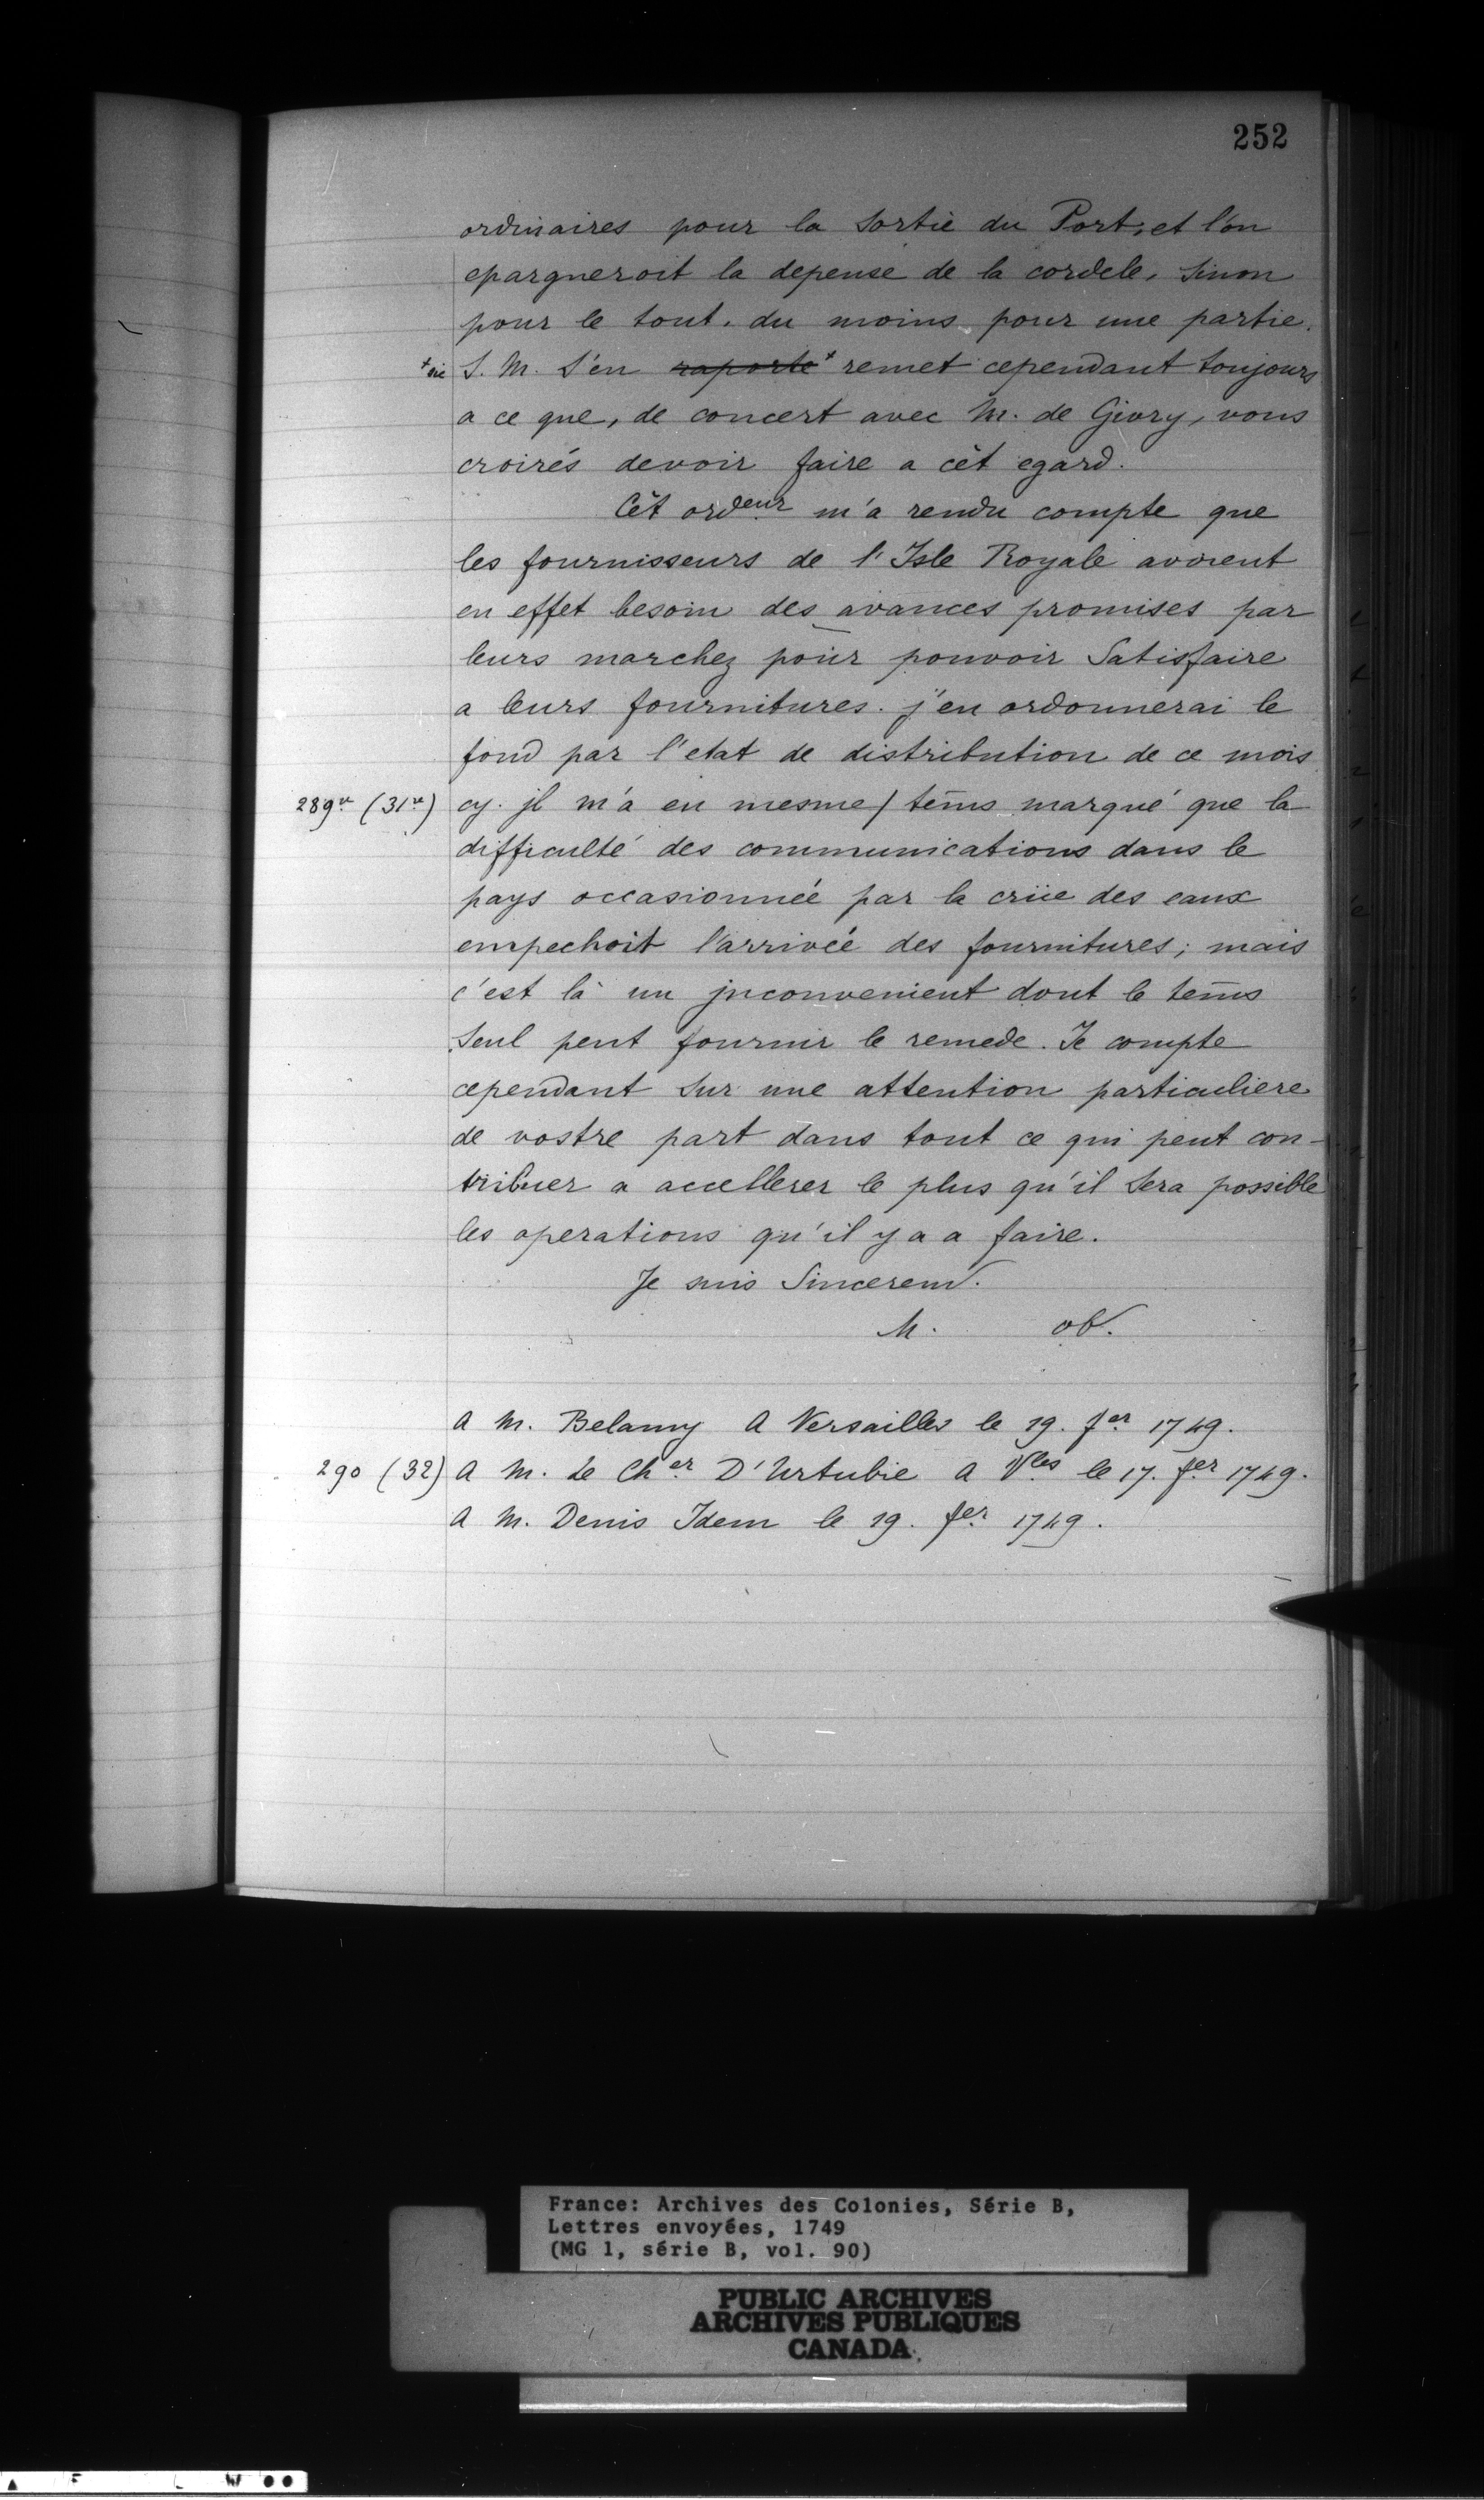 252
ordinaires pour la Sortie du Port, et l'on
epargneroit la depense de la cordele, Sinon
pour le tout. du moins pour une partie.
+ sic S. M. S'en raporte + remet cependant toujours
a ce que, de concert avec M. de Givry, vous
croirés devoir faire a cèt egard.
Cèt ordeur m'a rendu compte que
les fournisseurs de l'Isle Royale avoient
en effet besoin des avances promises par
leurs marchez pour pouvoir Satisfaire
a leurs fournitures. j'en ordonnerai le
fond par l'etat de distribution de ce mois
289vo (31vo) cy. jl m'a en mesme / tems marqué que la
difficulté des communications dans le
pays occasionnée par la crüe des eaux
empechoit l'arrivée des fournitures; mais
c'est là un jnconvenient dont le tems
Seul peut fournir le remede. Je compte
cependant Sur une attention particuliere
de vostre part dans tout ce qui peut con-
tribuer a accellerer le plus qu'il Sera possible
les operations qu'il y a a faire.
Je suis Sincerem.
M. ob.
A M. Belamy A Versailles le 19. fer 1749.
290 (32) A M. Le Cher D'Urtubie A Vles le 17. fer 1749.
A M. Denis Idem le 19. fer 1749.
France: Archives des Colonies, Série B,
Lettres envoyées, 1749
(MG 1, série B, vol. 90)
PUBLIC ARCHIVES
ARCHIVES PUBLIQUES
CANADA